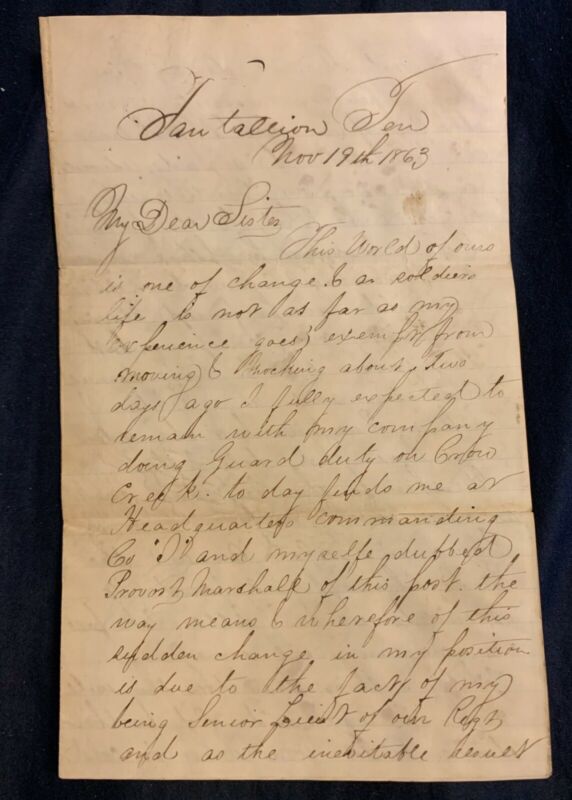 Tantallion Ten
Nov 19th 1863
My Dear Sister
This World of ours
is one of change & a soldiers
life is not as far as my
experience goes, exempt from
moving & knocking about, two
days ago I fully expected to
remain with my company
doing Guard duty on Crow
Creek. to day finds me at
Headquarters commanding
Co "I" and myselfe dubbed
Provost Marshall of this post. the
way means & wherefore of this
sudden change in my position
is due to the fact of my
being Senior Lieut of our Regt
and as the inevitable